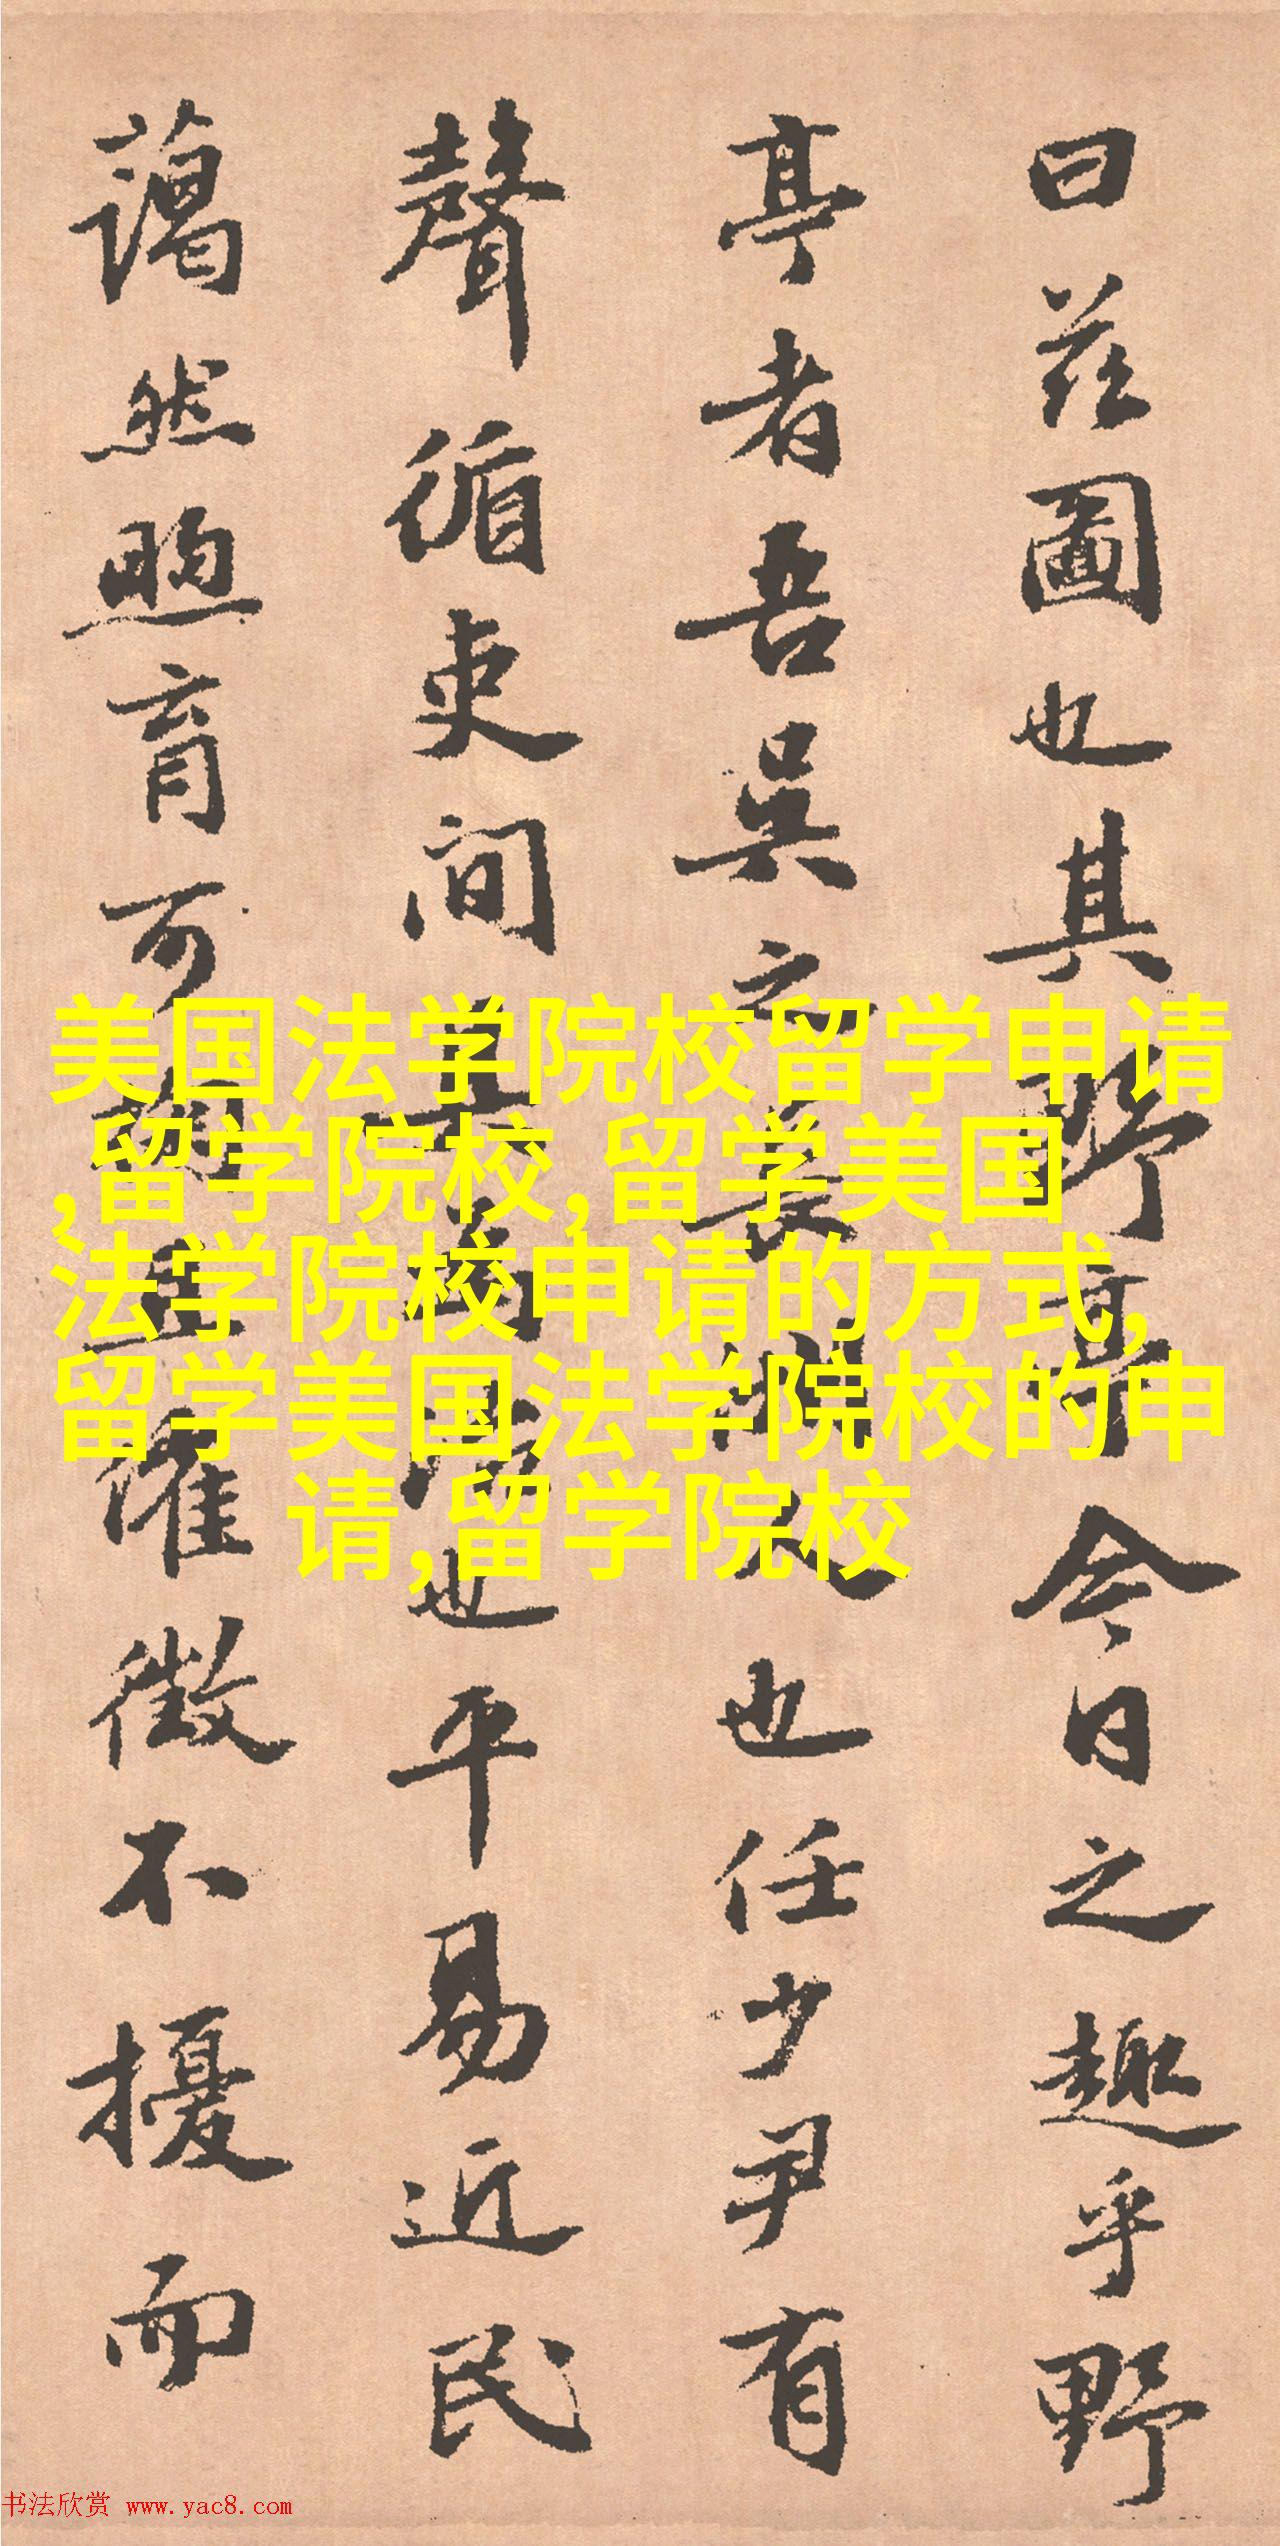 曰茲圖也其野亭今日之趣乎野
亭者吾吳之長洲人也任少尹有
聲循吏間其為治也平易近民
藹然煦育可掬且催徵不擾而
美国法学院校留学申请
,留学院校,留学美国
法学院校申请的方式,
留学美国法学院校的申
请,留学院校
书法欣赏 www.yac8.com